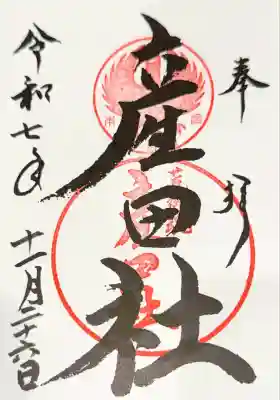 奉拝
産田社
令和七年
十一月二十六日